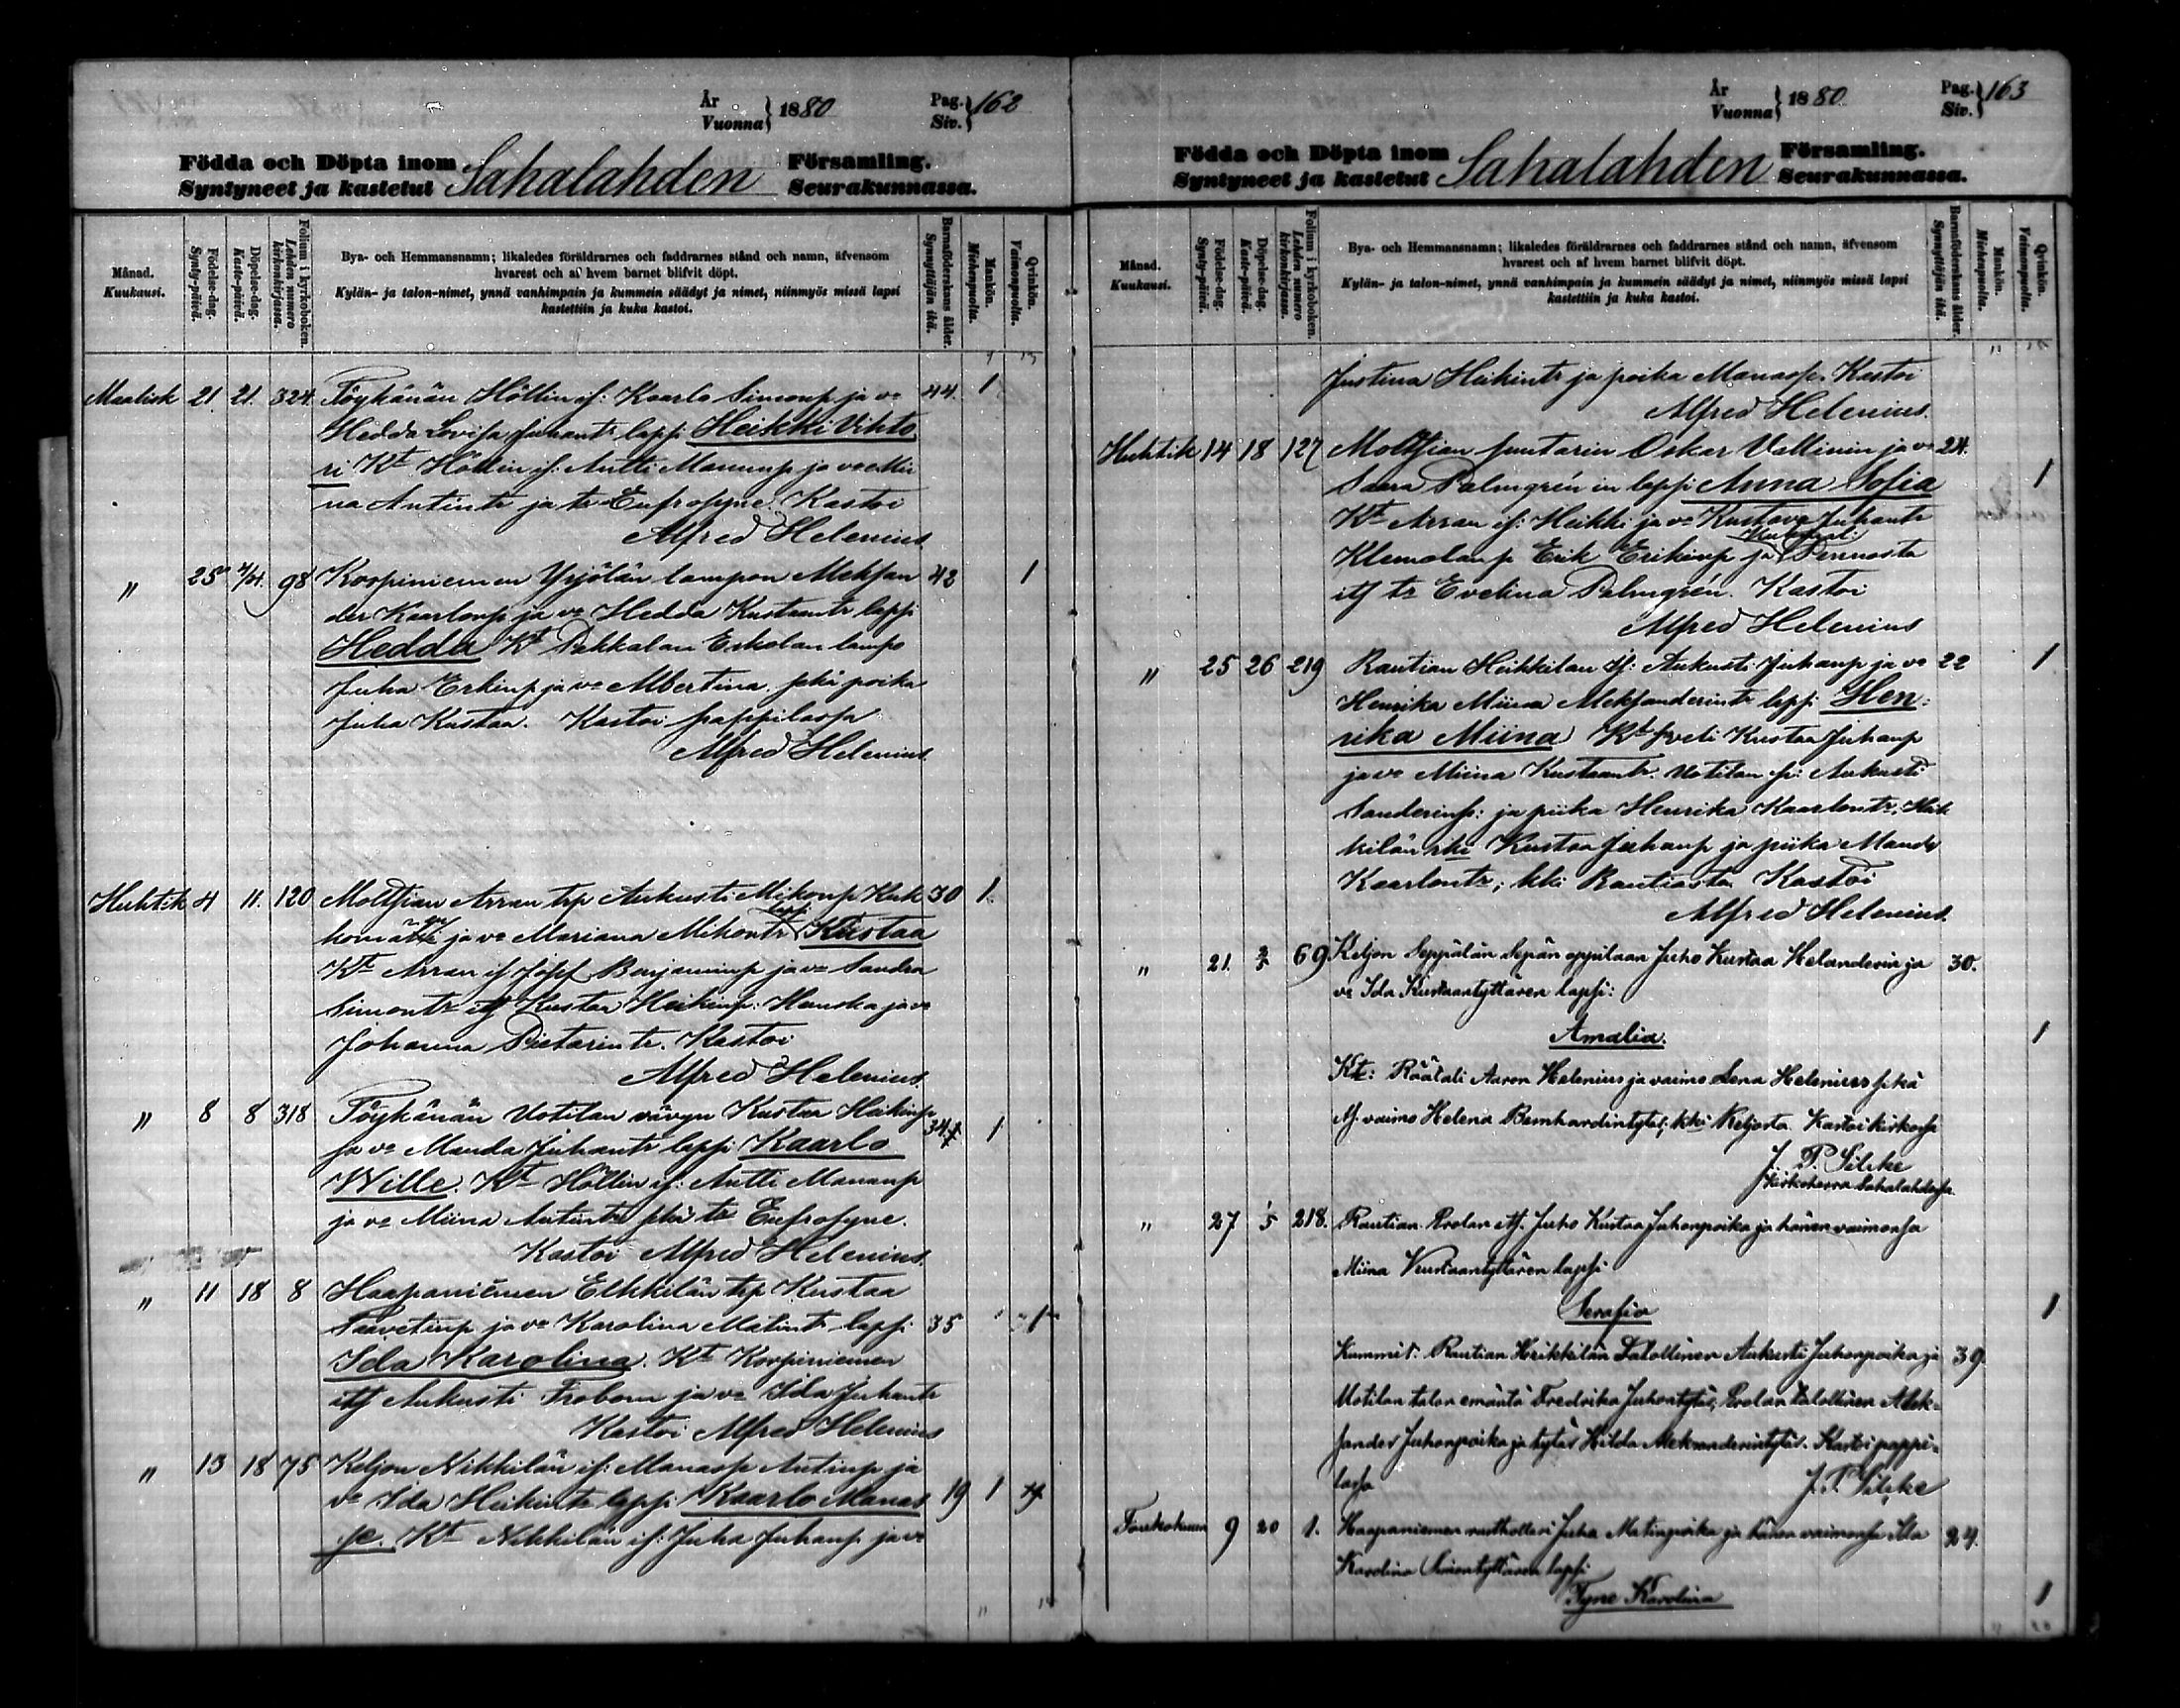 År
Vuonna } 1880
Pag.
Siv. } 162
Födda och Döpta inom Sahalahden Församling.
Syntyneet ja kastetut Seurakunnassa.
Månad.
Kuukausi.
Födelse-dag.
Synty-päivä.
Döpelse-dag.
Kaste-päivä.
Folium i kyrkoboken.
Lehden numero kirkonkirjassa.
Bya- och Hemmansnamn; likaledes föräldrarnes och faddrarnes stånd och namn, äfvensom
hvarest och af hvem barnet blifvit döpt.
Kylän- ja talon-nimet, ynnä vanhimpain ja kummein säädyt ja nimet, niinmyös missä lapsi
kastettiin ja kuka kastoi.
Barnaföderskans ålder.
Synnyttäjän ikä.
Mankön.
Miehenpuolta.
Qvinkön.
Vaimonpuolta.
Maalisk 21. 21. 324. Töykänän Höllin if: Kaarlo Simonp ja vo 44. 1
Hedda Lovisa Juhantr lapsi Heikki Vihto
ri Kt Höllin if: Antti Manump ja vo Mii
na Antintr ja tr Eufrosyne. Kastoi
Alfred Helenius.
" 25 4/4. 98 Korpiniemen Yrjölän lampon Aleksan 42 1
der Kaarlonp ja vo Hedda Kustaantr lapsi
Hedda Kt Pakkalan Eskolan lampo
Juha Erkinp ja vo Albertina, poika
Juha Kustaa. Kastoi pappilassa
Alfred Helenius.
Huhtik 4 11. 120 Moltsian Arran trp Aukusti Mikonp Kuk 30 1.
ja vo Mariana Mikontr lapsi Kustaa
Kt Arran if Josef Benjaminp ja vo Sandra
Simontr itf Kustaa Heikinp: Hanska ja vo
Johanna Pietarintr. Kastoi
Alfred Helenius
" 8 8 318 Töykänän Uotilan vävyn Kustaa Heikinp 34 1
ja vo Manda Juhantr lapsi Kaarlo
Wille. Kt Höllin if: Antti Manunp
ja vo Miina Antintr tr Eufrosyne.
Kastoi Alfred Helenius.
" 11 18 8 Haapaniemen Elkkilän trp Kustaa
Taavetinp ja vo Karolina Matintr lapsi 35 1
Ida Karolina. Kt Korpiniemen
itf Aukusti Frobom ja vo Ida Juhantr
Kastoi Alfred Helenius
" 13 18 75 Keljon Nikkilän if: Manasse Antinp ja
vo Ida Heikintr lapsi Kaarlo Manas 19 1
se. Kt Nikkilän if: Juha Juhanp ja vo
År
Vuonna } 1880
Pag.
Siv. } 163
Födda och Döpta inom Sahalahden Församling.
Syntyneet ja kastetut Seurakunnassa.
Månad.
Kuukausi.
Födelse-dag.
Synty-päivä.
Döpelse-dag.
Kaste-päivä.
Folium i kyrkoboken.
Lehden numero kirkonkirjassa.
Bya- och Hemmansnamn; likaledes föräldrarnes och faddrarnes stånd och namn, äfvensom
hvarest och af hvem barnet blifvit döpt.
Kylän- ja talon-nimet, ynnä vanhimpain ja kummein säädyt ja nimet, niinmyös missä lapsi
kastettiin ja kuka kastoi.
Barnaföderskans ålder.
Synnyttäjän ikä.
Mankön.
Miehenpuolta.
Qvinkön.
Vaimonpuolta.
Justina Heikintr ja poika Manasse. Kastoi
Alfred Helenius.
Huhtik 14 18 127 Moltsian suutarin Oskar Vallinin ja vo 24.
Saara Palmgrén'in lapsi Anna Sofia 1
Kt Arran if: Heikki ja vo Kustava Juhantr
Klemolanp Erik Erikinp ja Pennasta
itf tr Evelina Palmgrén. Kastoi
Alfred Helenius
" 25 26 219 Rautian Heikkilän if: Aukusti Juhanp ja vo 22 1
Henrika Miina Aleksanderintr lapsi Hen:
rika Miina Kt sveli Kustaa Juhanp
ja vo Miina Kustaantr. Uotilan Aukusti
Sanderinp: ja piika Henrika Kaarlontr, Heik
kilän Kustaa Juhanp ja piika Manda
Kaarlontr, kki Rautiasta Kastoi
Alfred Helenius.
" 21. 2/5 69 Keljon Seppälän Sepän oppilaan Juho Kustaa Helanderin ja 30.
vo Ida Kustaantyttären lapsi:
Amalia. 1
Kt: Räätäli Aaron Helenius ja vaimo Lena Helenius sekä
vaimo Helena Bernhardintytär, kki Keljosta. Kastoi kirkossa
J. P. Silcke
Kirkkoherra Sahalahdessa.
" 27 1/5 218. Rautian Prolan itf. Juho Kustaa Juhonpoika ja hänen vaimonsa
Miina Kustaantyttären lapsi
Serafia 1
Kummit. Rautian Heikkilän Talollinen Aukusti Juhonpoika ja 39.
Uotilan talon emäntä Fredrika Juhontytär, Prolan talollinen Alek-
sander Juhonpoika ja tytär Hilda Aleksanderintytär. Kastoi pappi-
lassa J. P. Silcke
Toukokuun 9 20 1. Haapaniemen rusthollari Juha Matinpoika ja hänen vaimonsa Ida 24.
Karolina Simontyttären lapsi
Tyne Karolina 1